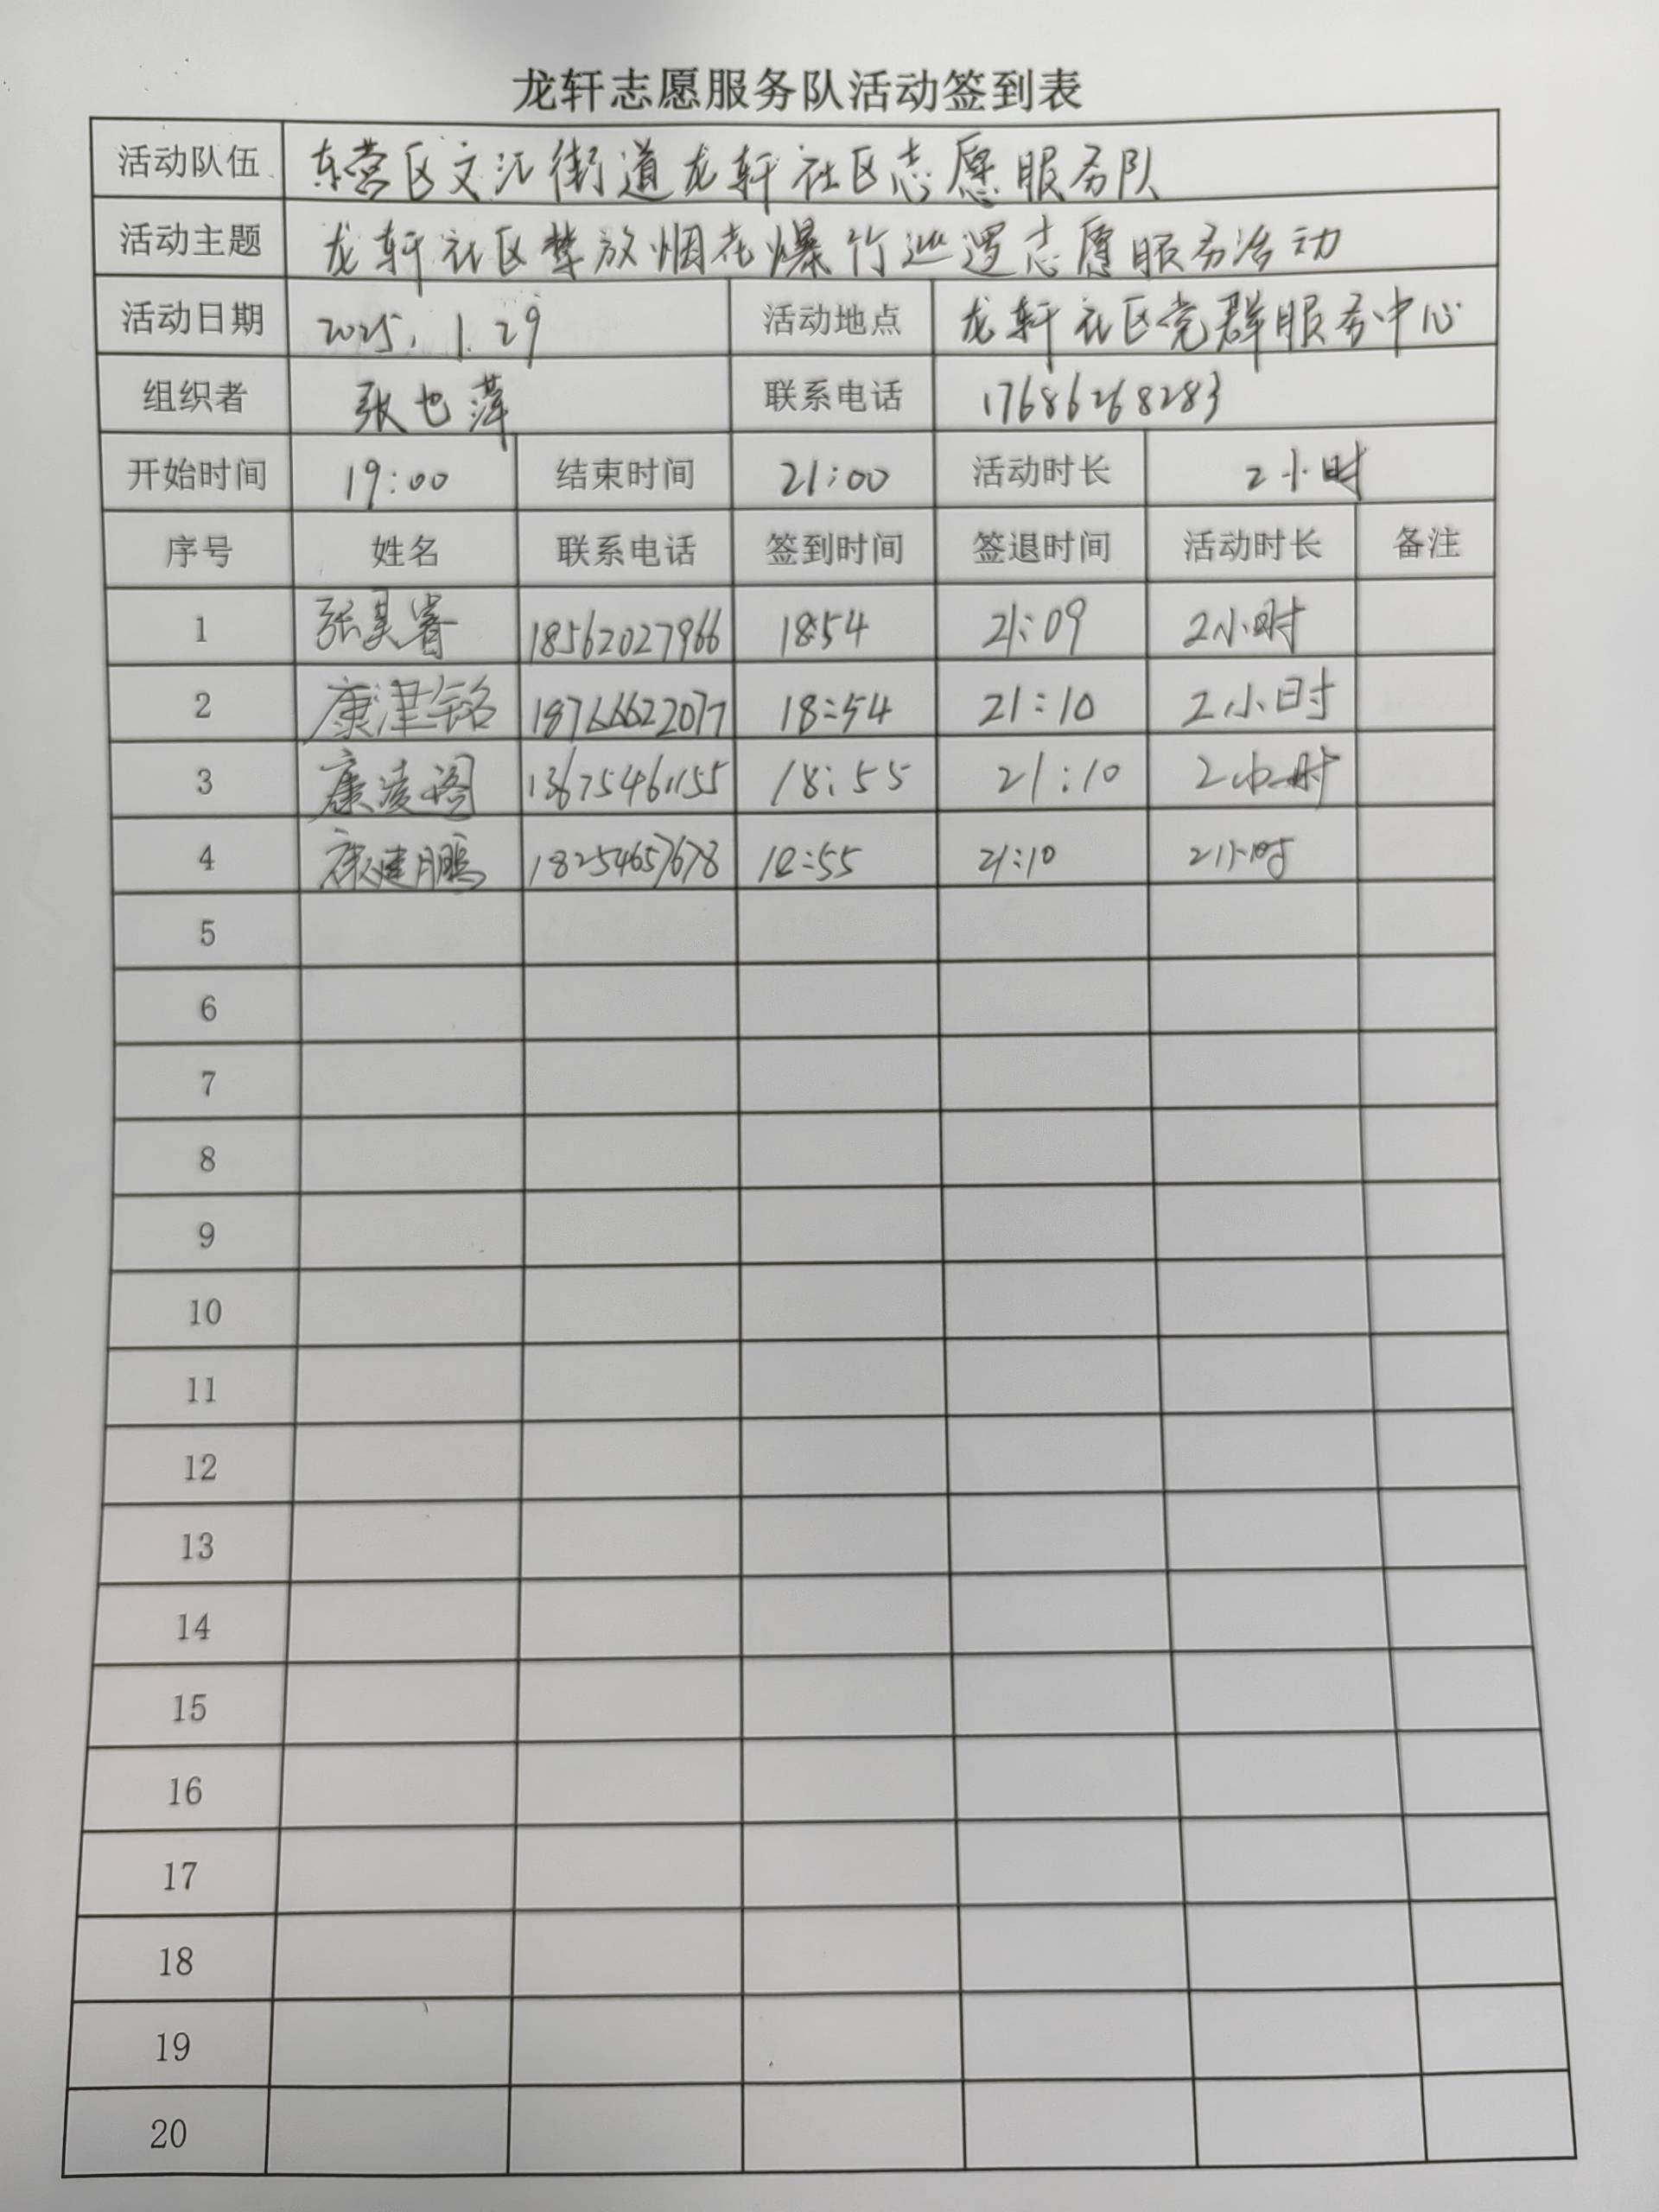 龙轩志愿服务队活动签到表
活动队伍 东营区文汇街道龙轩社区志愿服务队
活动主题 龙轩社区禁放烟花爆竹巡逻志愿服务活动
活动日期 2025.1.29 活动地点 龙轩社区党群服务中心
组织者 张也萍 联系电话 17686268283
开始时间 19:00 结束时间 21:00 活动时长 2小时
序号 姓名 联系电话 签到时间 签退时间 活动时长 备注
1 张昊睿 18562027966 18:54 21:09 2小时
2 康津铭 18766622077 18:54 21:10 2小时
3 康凌阁 13675461155 18:55 21:10 2小时
4 康建鹏 18254657678 18:55 21:10 2小时
5
6
7
8
9
10
11
12
13
14
15
16
17
18
19
20